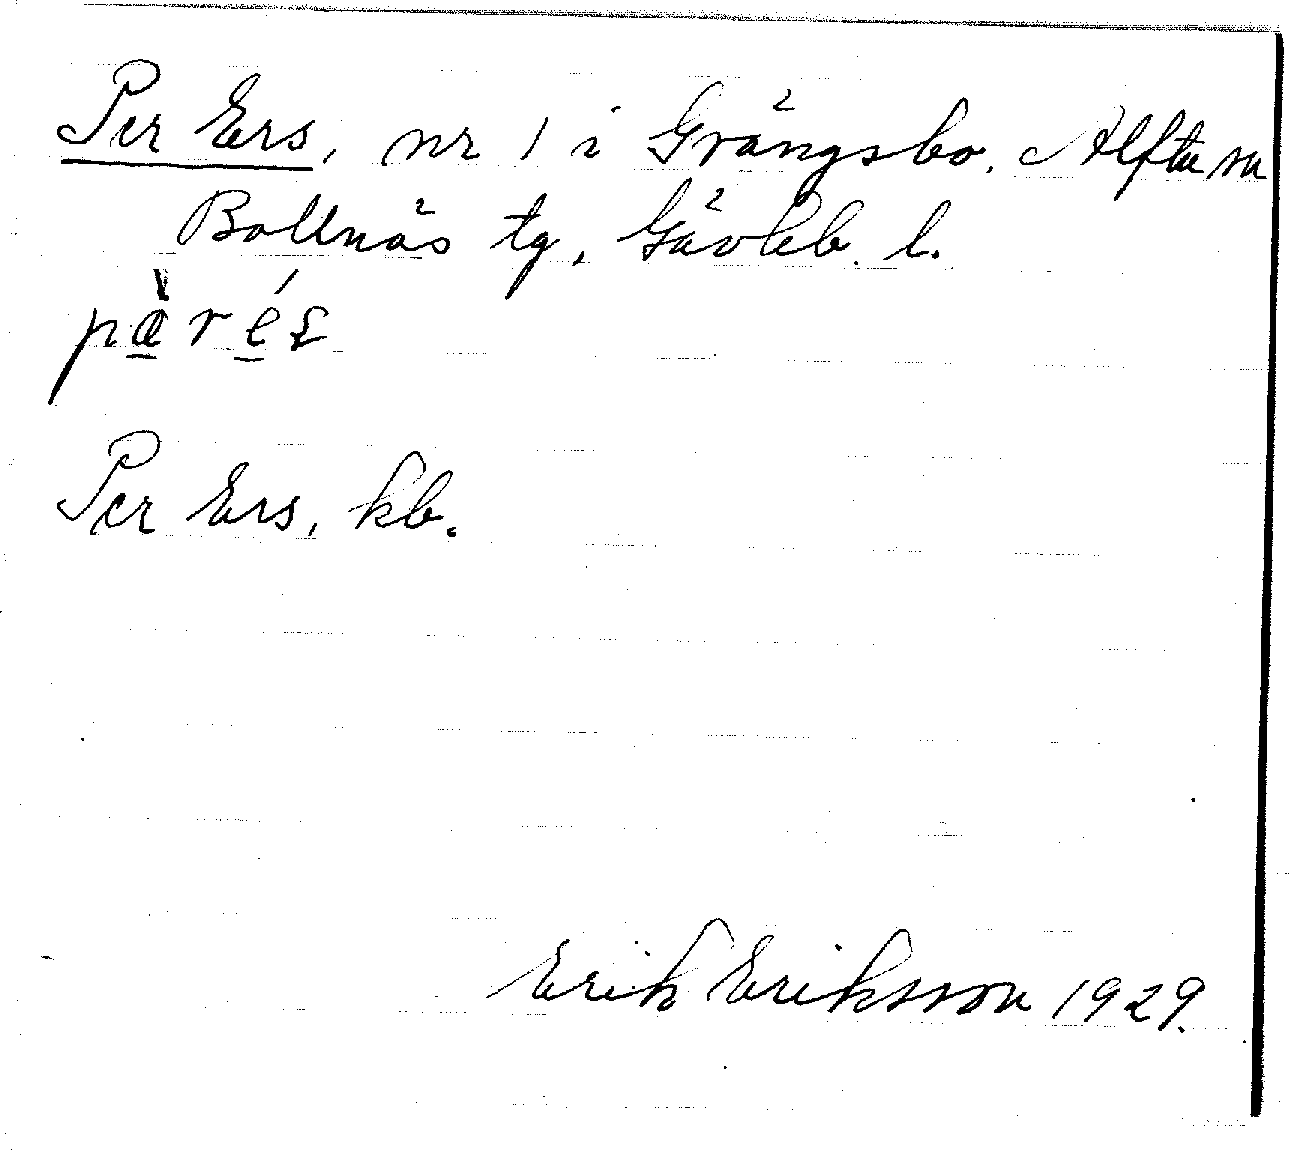 Per Ers, nr 1 i Grängsbo. Alfta sn
Bollnäs tg, Gävleb. l.
pæ̀rés
Per Ers, kb.
Erik Eriksson 1929.